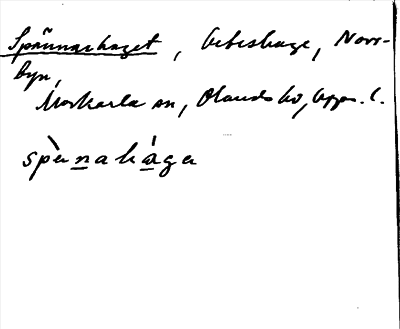 Spånnarhaget, beteshage, Norr-
byn,
Morkarla sn, Olands hd, Upps. l.
spànahága